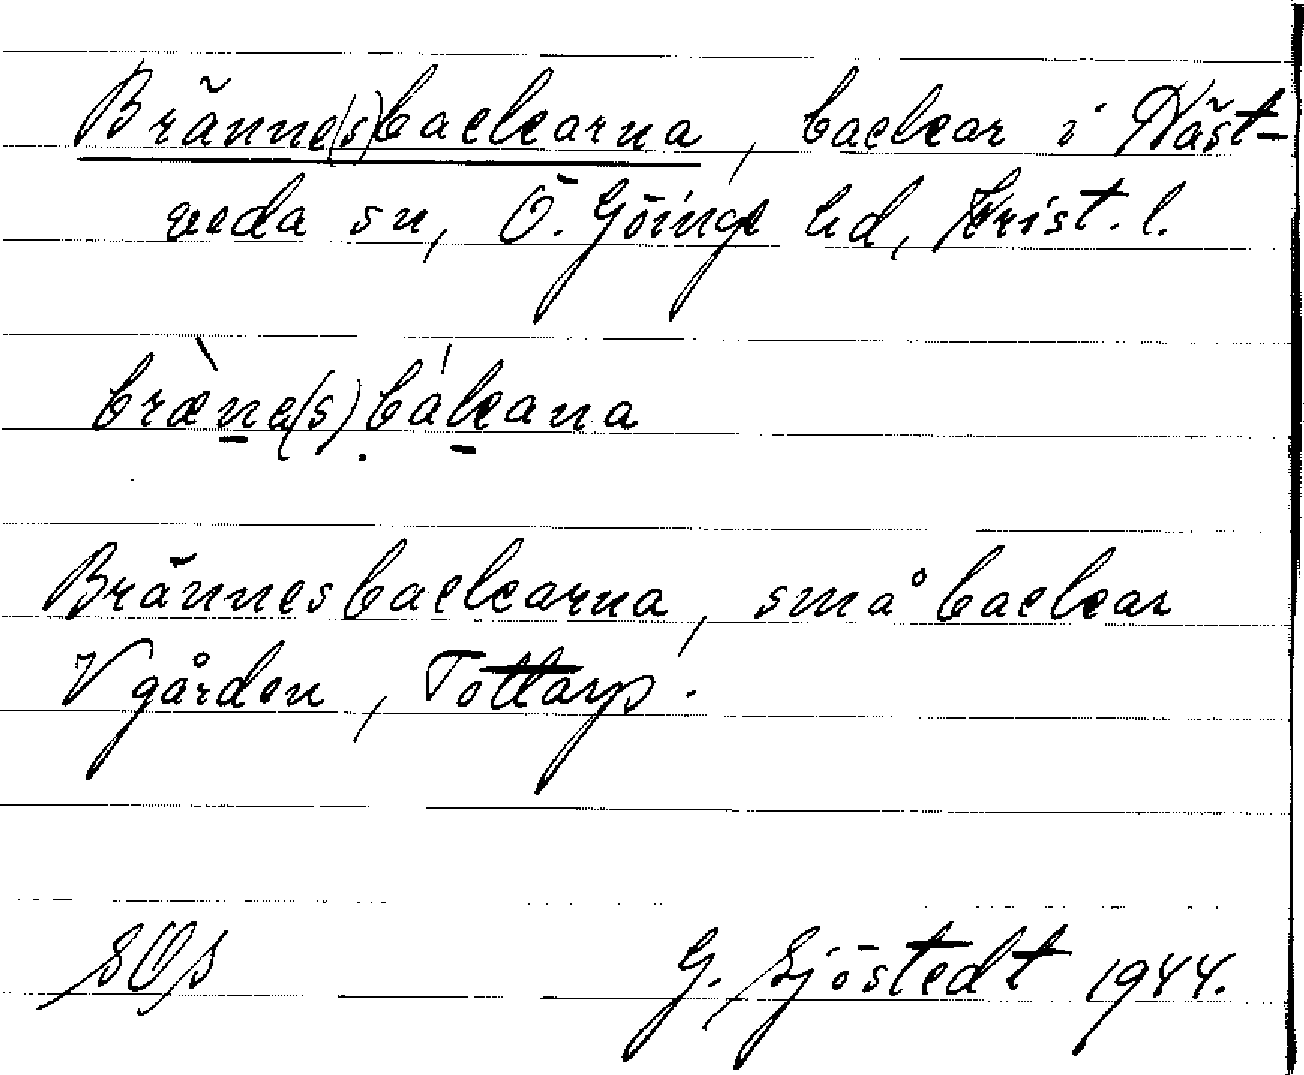 Bränne(s)backarna, backar i Näst-
veda sn, Ö. Göinge hd, Krist. l.
bræ̀ne(s).bákana
Brännesbackarna, små backar
V gården, Tottarp.
SOS
G. Sjöstedt 1944.